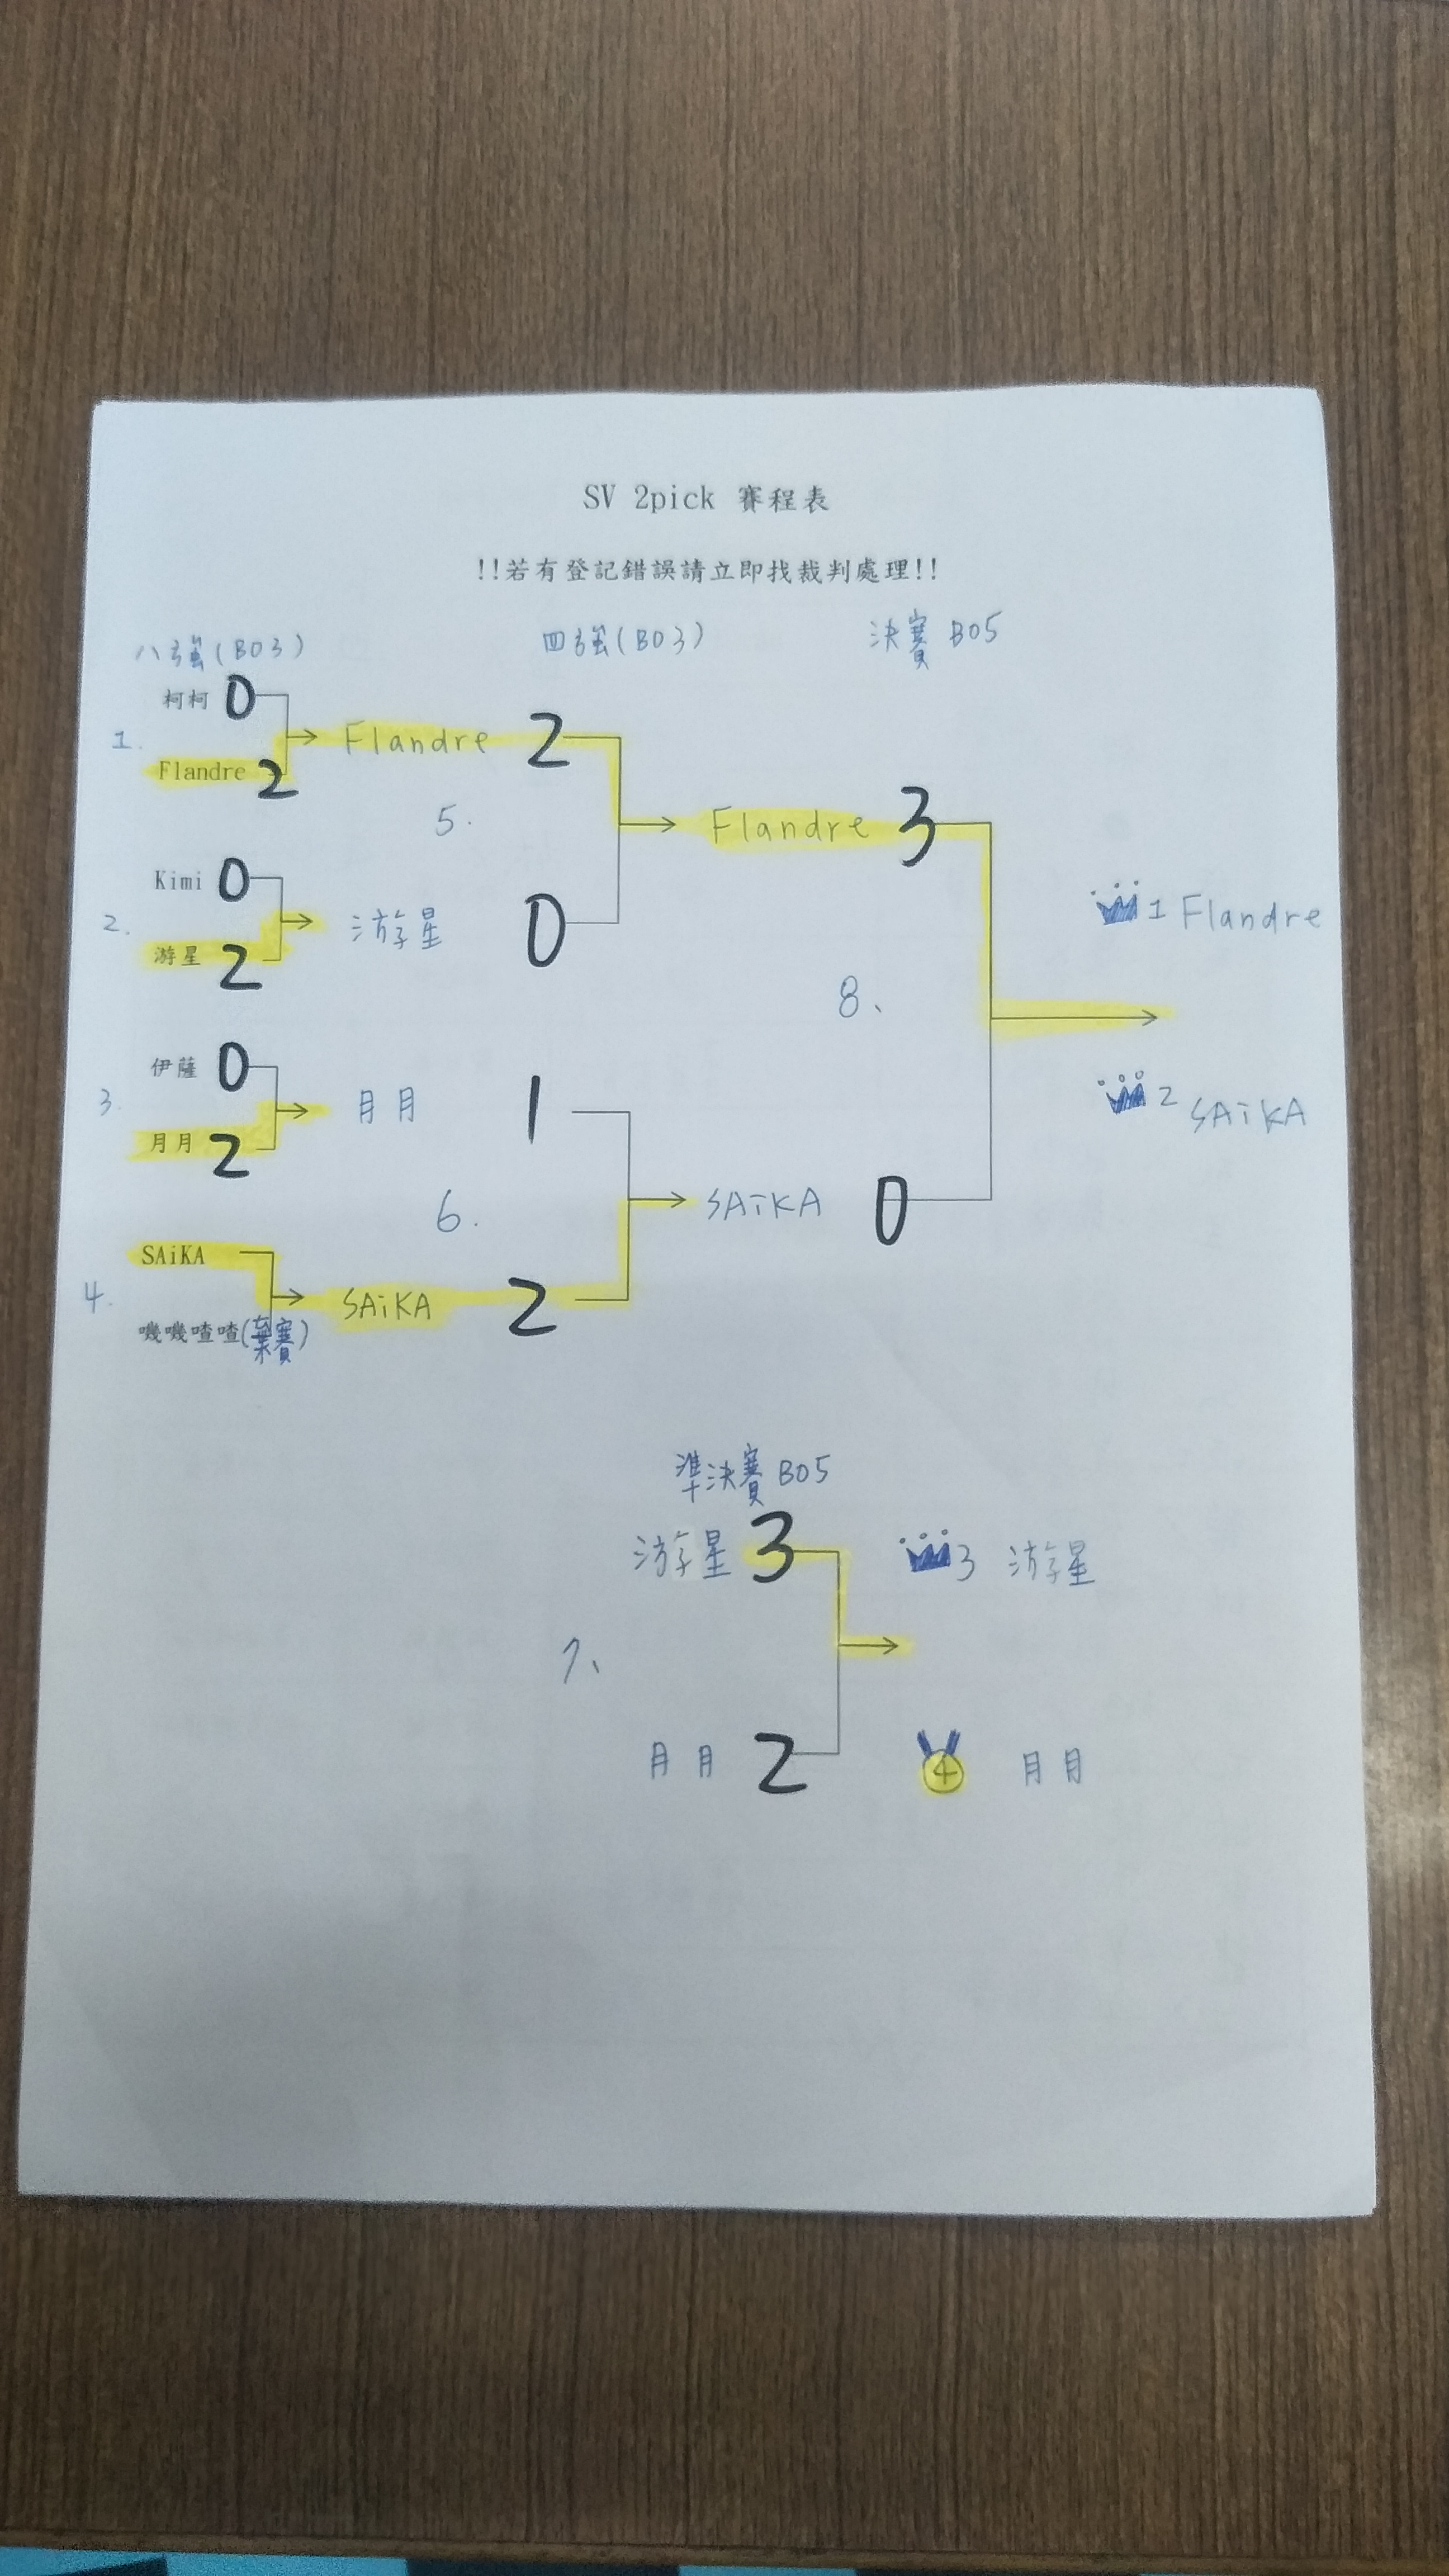 SV 2pick 賽程表
!!若有登記錯誤請立即找裁判處理!!
八強(BO3)
四強(BO3)
決賽 BO5
柯柯 0
1.
Flandre 2
Flandre 2
5.
Kimi 0
2.
游星 2
游星 0
Flandre 3
伊薩 0
3.
月月 2
月月 1
6.
SAiKA
4.
嘰嘰喳喳(棄賽)
SAiKA 2
SAiKA 0
8、
1 Flandre
2 SAiKA
準決賽 BO5
游星 3
3 游星
7、
月月 2
4 月月